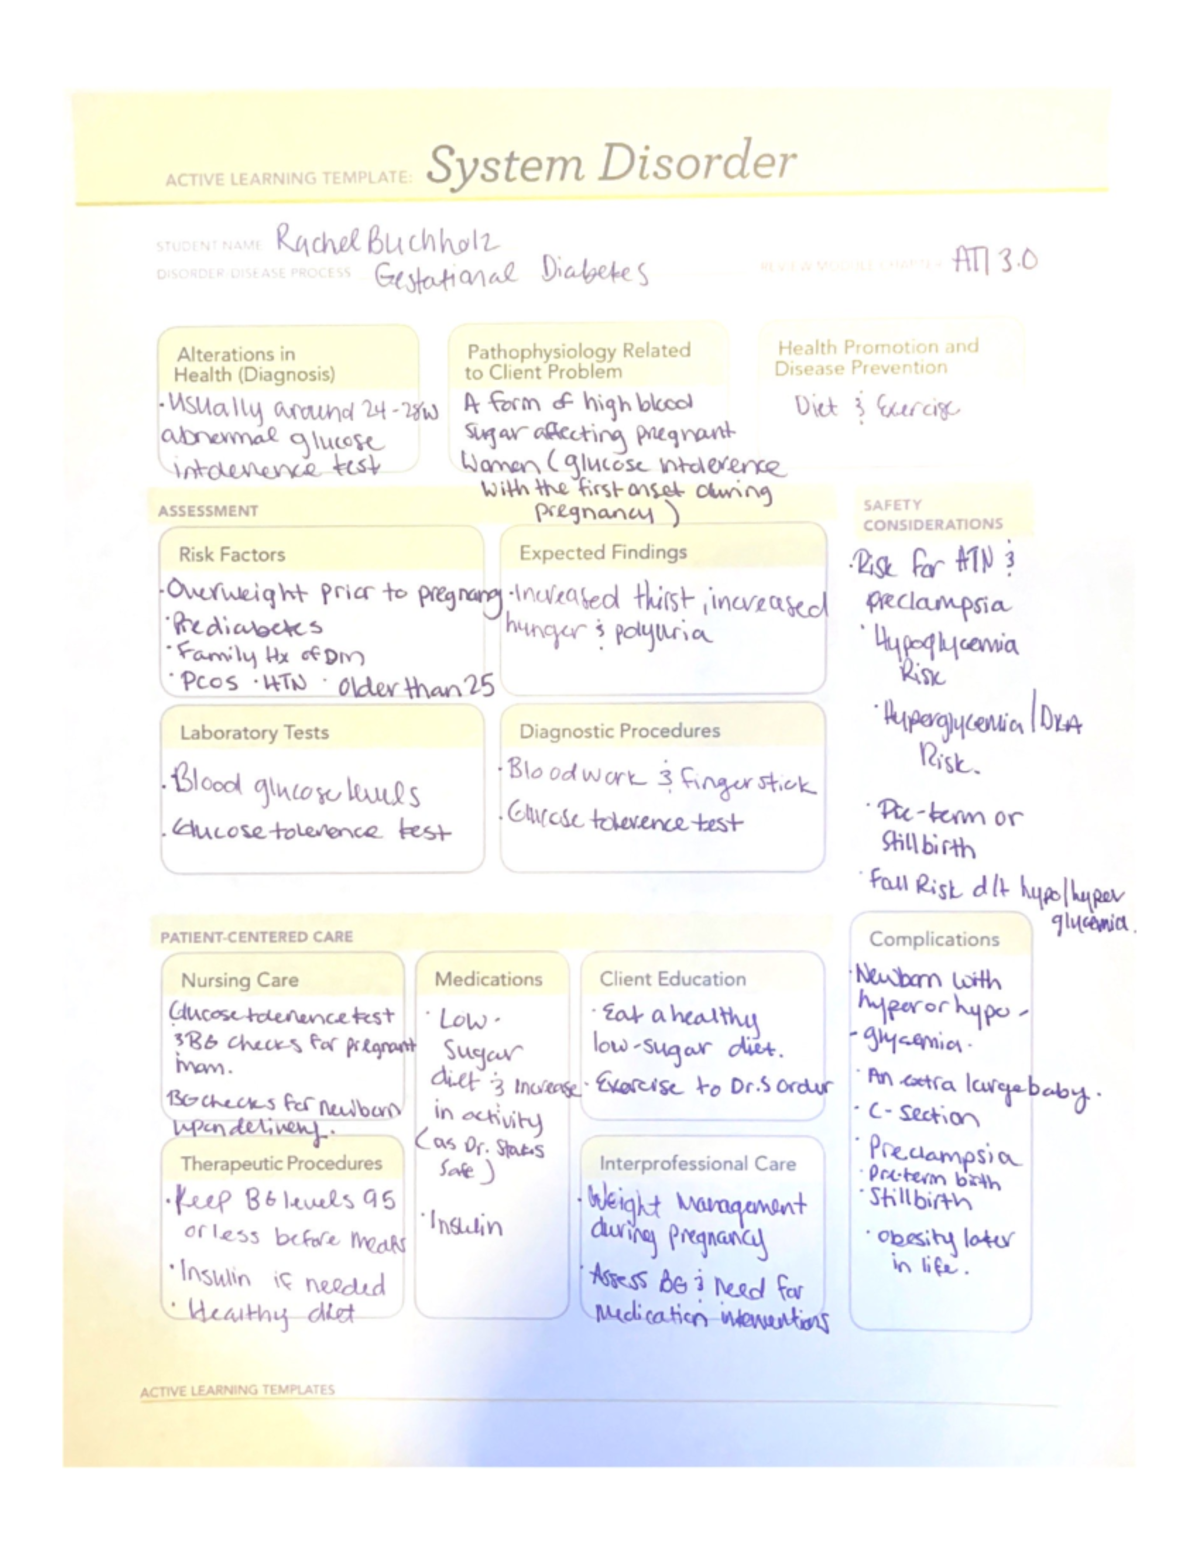 ACTIVE LEARNING TEMPLATE: System Disorder
STUDENT NAME Rachel Buchholz
DISORDER/DISEASE PROCESS Gestational Diabetes
REVIEW MODULE CHAPTER ATI 3.0
Alterations in
Health (Diagnosis)
·Usually around 24-28w
abnormal glucose
intolerence test
Pathophysiology Related
to Client Problem
A form of high blood
sugar affecting pregnant
Women (glucose intolerence
with the first onset during
pregnancy)
Health Promotion and
Disease Prevention
Diet & Exercise
ASSESSMENT
Risk Factors
·Overweight prior to pregnancy
·Prediabetes
·Family Hx of DM
·PCOS ·HTN ·older than 25
Expected Findings
·Increased thirst, increased
hunger & polyuria
Laboratory Tests
·Blood glucose levels
·Glucose tolerence test
Diagnostic Procedures
·Bloodwork & finger stick
·Glucose tolerence test
SAFETY
CONSIDERATIONS
·Risk for HTN &
preclampsia
·Hypoglycemia
Risk
·Hyperglycemia/DKA
Risk.
·Pre-term or
Stillbirth
·Fall Risk d/t hypo/hyper
glycemia.
PATIENT-CENTERED CARE
Nursing Care
Glucose tolerence test
& BG checks for pregnant
mom.
BG checks for newborn
upon delivery.
Medications
·Low-
Sugar
diet & increase
in activity
(as Dr. States
Safe)
·Insulin
Client Education
·Eat a healthy
low-sugar diet.
·Exercise to Dr.s order
Therapeutic Procedures
·Keep BG levels 95
or less before meals
·Insulin if needed
·Healthy diet
Interprofessional Care
·Weight Management
during pregnancy
·Assess BG & need for
medication interventions
Complications
·Newborn with
hyper or hypo-
-glycemia.
·An extra large baby.
·C-section
·Preclampsia
·Pre-term birth
·Stillbirth
·obesity later
in life.
ACTIVE LEARNING TEMPLATES